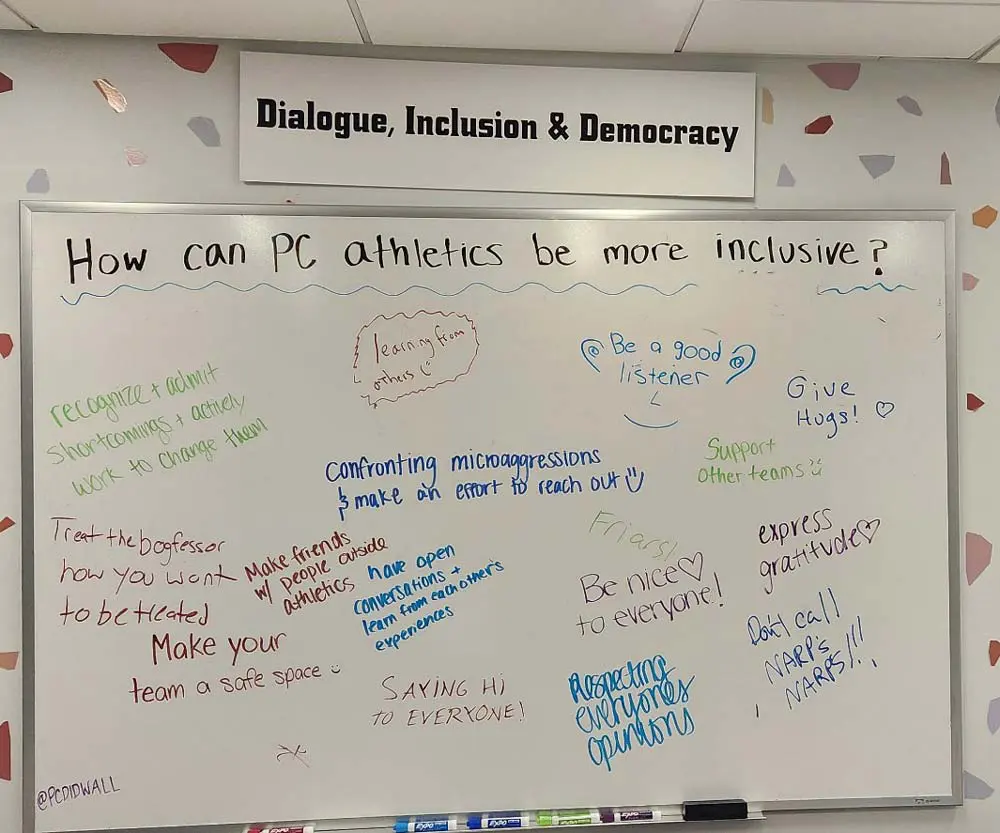 Dialogue, Inclusion & Democracy
How can PC athletics be more inclusive?
learning from
others
Be a good
listener
Give
Hugs!
recognize + admit
shortcomings + actively
work to change them
Support
Other teams
Confronting microaggressions
& make an effort to reach out
Treat the bogfessor
how you want
to be treated
Make friends
w/ people outside
athletics
have open
conversations +
learn from each other's
experiences
Friars!
Be nice
to everyone!
express
gratitude
Make your
team a safe space
SAYING Hi
TO EVERYONE!
Respecting
everyones
opinions
Don't call
NARP's
NARPS!!!
@PCDIDWALL
EXPO
EXPO
EXPO
EXPO